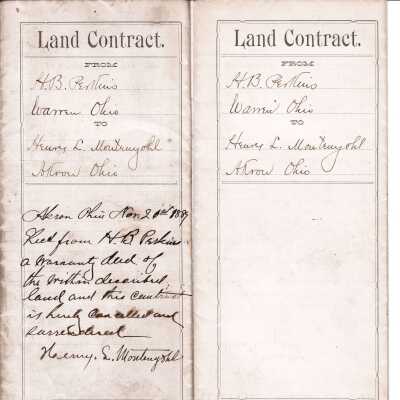 Land Contract.
FROM
H. B. Perkins
Warren Ohio
TO
Henry L. Montenyohl
Akron Ohio
Akron Ohio Nov. 2
Recd from H. B. Perkins
a warranty deed of
the within described
land and this contract
is hereby cancelled and
surrendered
Henry. L. Montenyohl
Land Contract.
FROM
H. B. Perkins
Warren Ohio
TO
Henry L. Montenyohl
Akron Ohio